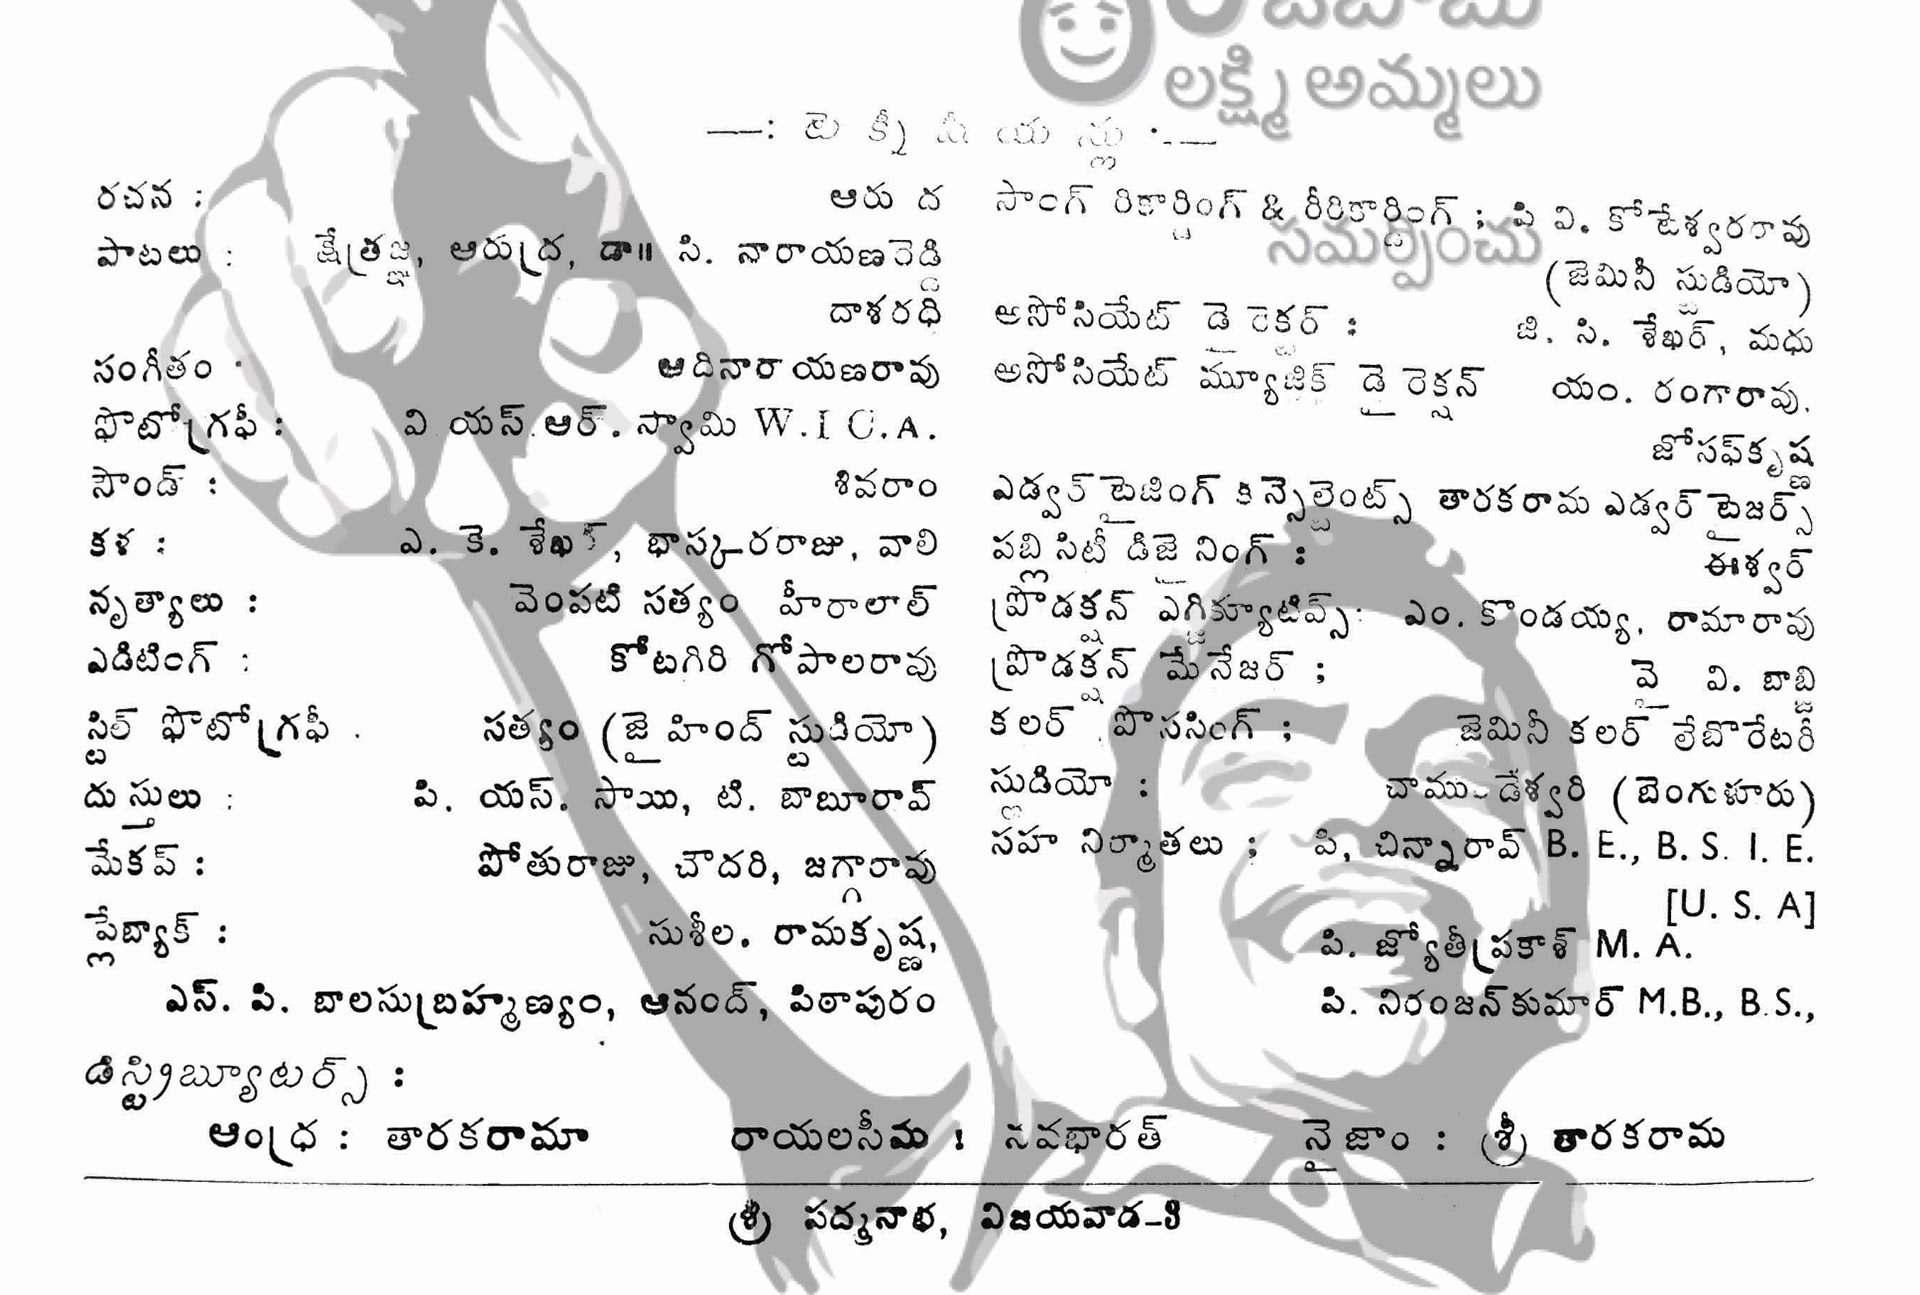 లక్ష్మి అమ్మలు
సమర్పించు
—: టెక్నీషియన్లు :—
రచన : ఆరుద్ర
పాటలు : క్షేత్రజ్ఞ, ఆరుద్ర, డా॥ సి. నారాయణరెడ్డి
దాశరధి
సంగీతం : ఆదినారాయణరావు
ఫొటోగ్రఫీ : వి యస్.ఆర్. స్వామి W.I C.A.
సౌండ్ : శివరాం
కళ : ఎ. కె. శేఖర్, భాస్కరరాజు, వాలి
నృత్యాలు : వెంపటి సత్యం హీరాలాల్
ఎడిటింగ్ : కోటగిరి గోపాలరావు
స్టిల్ ఫొటోగ్రఫీ . సత్యం (జై హింద్ స్టుడియో)
దుస్తులు : పి. యస్. సాయి, టి. బాబూరావ్
మేకప్ : పోతురాజు, చౌదరి, జగ్గారావు
ప్లేబ్యాక్ : సుశీల. రామకృష్ణ,
ఎస్. పి. బాలసుబ్రహ్మణ్యం, ఆనంద్, పిఠాపురం
సాంగ్ రికార్డింగ్ & రీరికార్డింగ్ ; పి వి. కోటేశ్వరరావు
(జెమినీ స్టుడియో)
అసోసియేట్ డైరెక్టర్ : జి. సి. శేఖర్, మధు
అసోసియేట్ మ్యూజిక్ డైరెక్షన్ యం. రంగారావు.
జోసఫ్‌కృష్ణ
ఎడ్వర్టైజింగ్ కన్సెల్టెంట్స్ తారకరామ ఎడ్వర్టైజర్స్
పబ్లిసిటీ డిజైనింగ్ : ఈశ్వర్
ప్రొడక్షన్ ఎగ్జిక్యూటివ్స్: ఎం. కొండయ్య, రామారావు
ప్రొడక్షన్ మేనేజర్ ; వై వి. బాబ్జి
కలర్ ప్రొససింగ్ ; జెమినీ కలర్ లేబొరేటరీ
స్టుడియో : చాముండేశ్వరి (బెంగుళూరు)
సహ నిర్మాతలు ; పి, చిన్నారావ్ B. E., B. S. I. E.
[U. S. A]
పి. జ్యోతీప్రకాశ్ M. A.
పి. నిరంజన్‌కుమార్ M.B., B.S.,
డిస్ట్రిబ్యూటర్స్ :
ఆంధ్ర : తారకరామా రాయలసీమ : నవభారత్ నైజాం : శ్రీ తారకరామ
శ్రీ పద్మనాభ, విజయవాడ-3